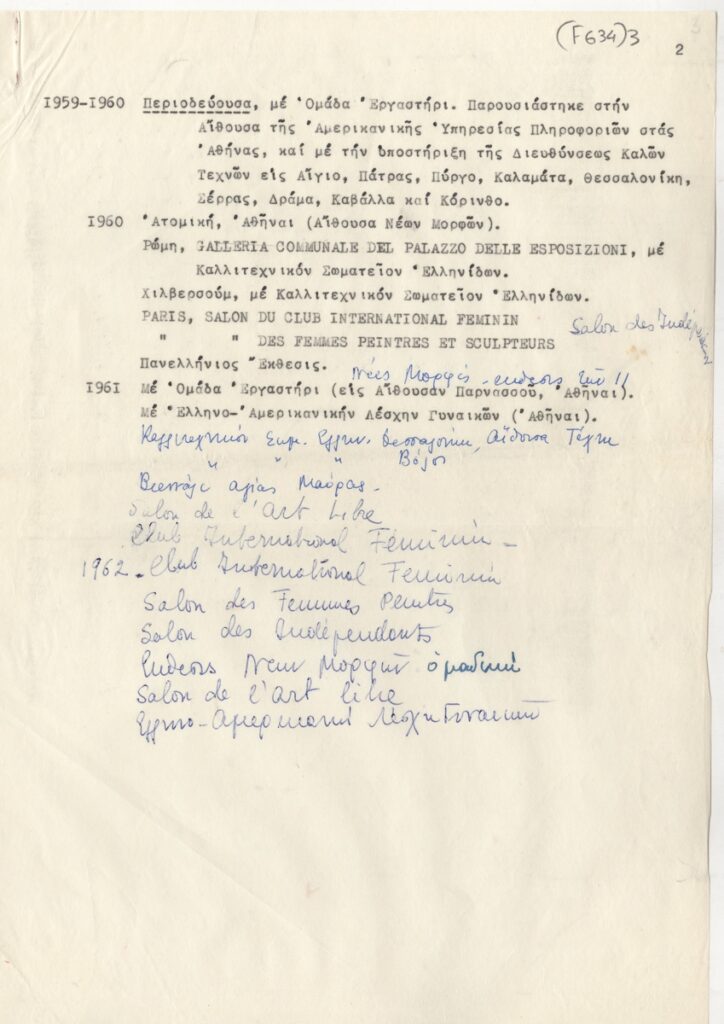 (F634)3
3
2
I959-I960 Περιοδεύουσα, μέ 'Ομάδα 'Εργαστήρι. Παρουσιάστηκε στήν
Αἴθουσα τῆς 'Αμερικανικῆς 'Υπηρεσίας Πληροφοριῶν στάς
'Αθήνας, καί μέ τήν ὑποστήριξη τῆς Διευθύνσεως Καλῶν
Τεχνῶν εἰς Αἴγιο, Πάτρας, Πύργο, Καλαμάτα, Θεσσαλονίκη,
Σέρρας, Δράμα, Καβάλλα καί Κόρινθο.
I960 'Ατομική, 'Αθῆναι (Αἴθουσα Νέων Μορφῶν).
Ρώμη, GALLERIA COMMUNALE DEL PALAZZO DELLE ESPOSIZIONI, μέ
Καλλιτεχνικόν Σωματεῖον 'Ελληνίδων.
Χιλβερσούμ, μέ Καλλιτεχνικόν Σωματεῖον 'Ελληνίδων.
PARIS, SALON DU CLUB INTERNATIONAL FEMININ
Salon des Indépendants
" " DES FEMMES PEINTRES ET SCULPTEURS
Πανελλήνιος "Εκθεσις.
Νέες Μορφές - εκθεσις των 11
I96I Μέ 'Ομάδα 'Εργαστήρι (εἰς Αἴθουσαν Παρνασσοῦ, 'Αθῆναι).
Μέ 'Ελληνο-'Αμερικανικήν Λέσχην Γυναικῶν ('Αθῆναι).
Καλλιτεχνικόν Σωμ. Ελλην. Θεσσαλονίκη, Αἴθουσα Τέχνη
" " " Βόλος
Βιεννάλε αγίας Μαύρας -
Salon de l'Art Libre
Club International Féminin -
1962 - Club International Feminin
Salon des Femmes Peintres
Salon des Indépendants
Εκθεσις Νεων Μορφών ὁμαδική
Salon de l'Art libre
Ελληνο-Αμερικανική Λέσχη Γυναικών